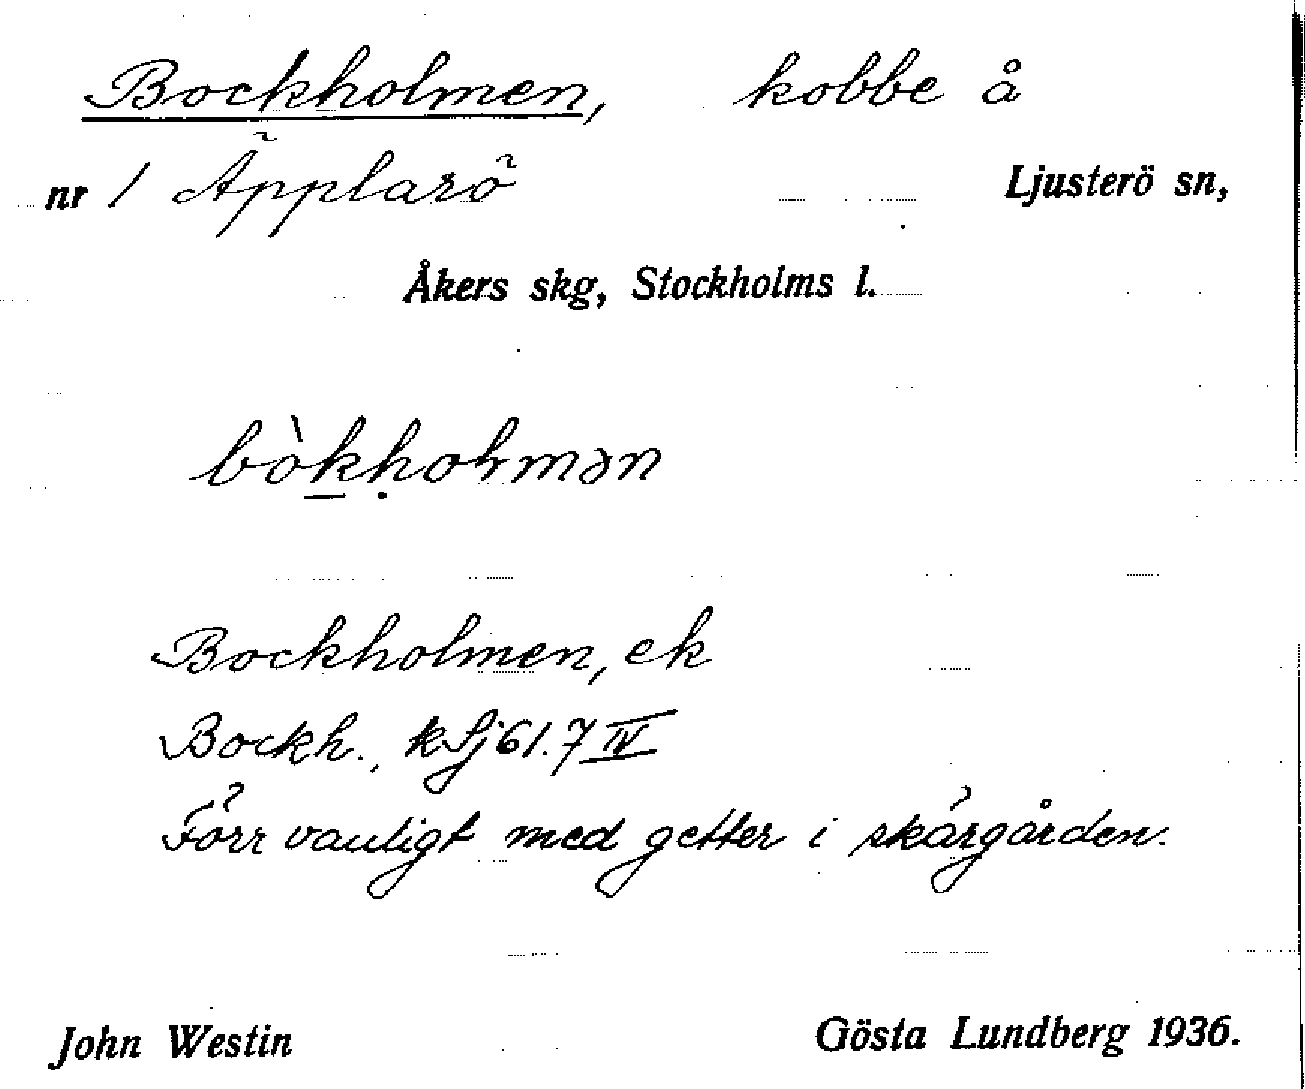 Bockholmen, kobbe å
nr 1 Äpplarö Ljusterö sn,
Åkers skg, Stockholms l.
bòk̠ḥolmən
Bockholmen, ek
Bockh., k Lj 61. 7 IV
Förr vanligt med getter i skärgården.
John Westin Gösta Lundberg 1936.